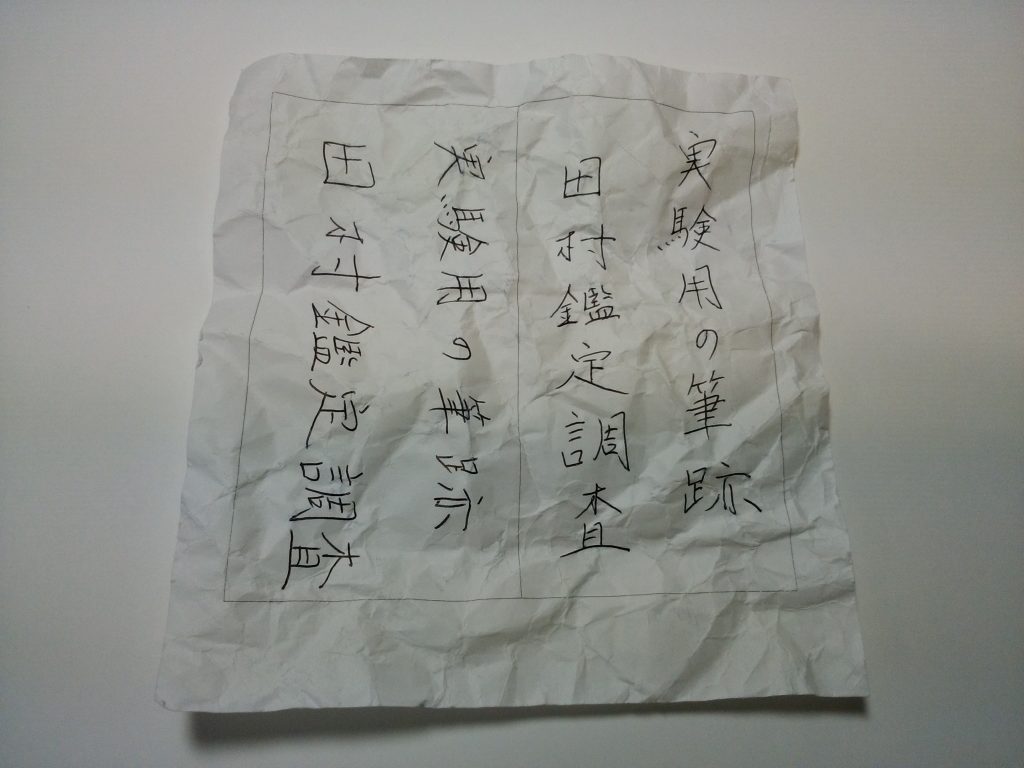 実験用の筆跡
田村鑑定調査
実験用の筆跡
田村鑑定調査